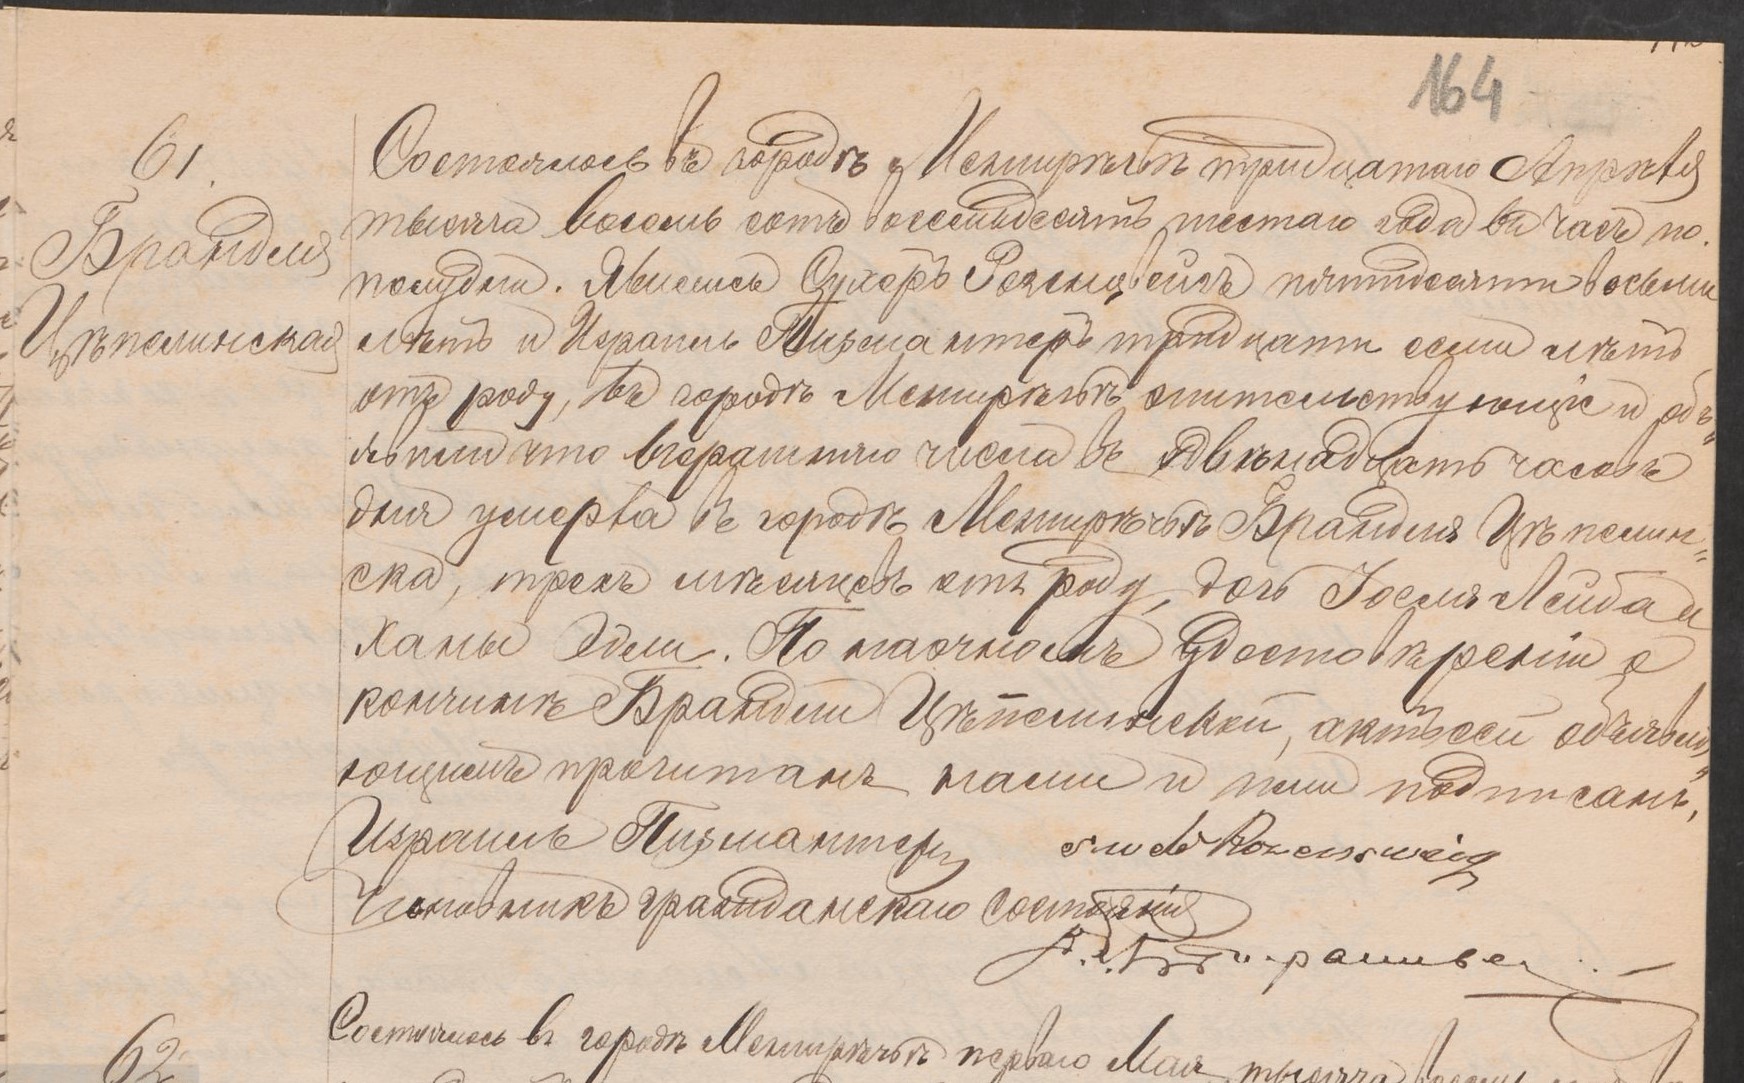 164
61.
Брандля
Цѣпелинская
Состоялось въ городѣ Менжирѣчьѣ тридцатаго Апрѣля
тысяча восемь сотъ восемьдесятъ шестаго года въ часъ по
полудни. Явились Сухеръ Розенцвейгъ пятидесяти восьми
лѣтъ и Израиль Пизмантеръ тридцати семи лѣтъ
отъ роду, въ городѣ Менжирѣчьѣ жительствующіе и объ„
явили что вчерашняго числа въ двѣнадцать часовъ
дня умерла въ городѣ Менжирѣчьѣ Брандля Цѣпелин„
ска, трехъ мѣсяцевъ отъ роду, дочь Іоселя Лейба и
Ханы Эдли. По наочномъ удостовѣреніи о
кончинѣ Брандли Цѣпелинской, актъ сей объявля„
ющимъ прочитанъ нами и ими подписанъ,
Израиль Пизмантеръ Rozenzweig
Чиновникъ гражданскаго состоянія
62
Состоялось въ городѣ Менжирѣчьѣ перваго Мая тысяча восемь